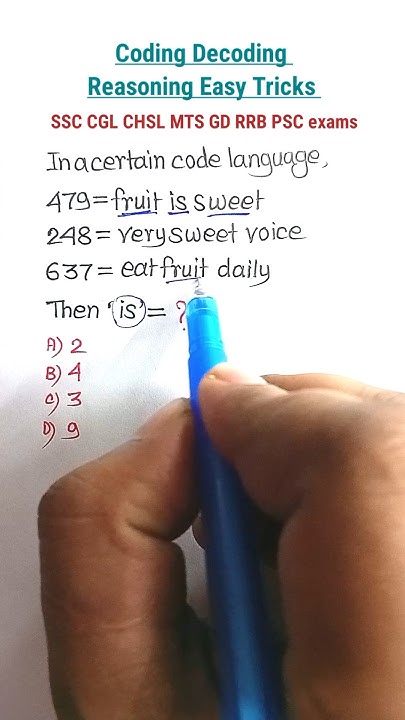 Coding Decoding
Reasoning Easy Tricks
SSC CGL CHSL MTS GD RRB PSC exams
In a certain code language,
479 = fruit is sweet
248 = very sweet voice
637 = eat fruit daily
Then 'is' = ?
A) 2
B) 4
C) 3
D) 9